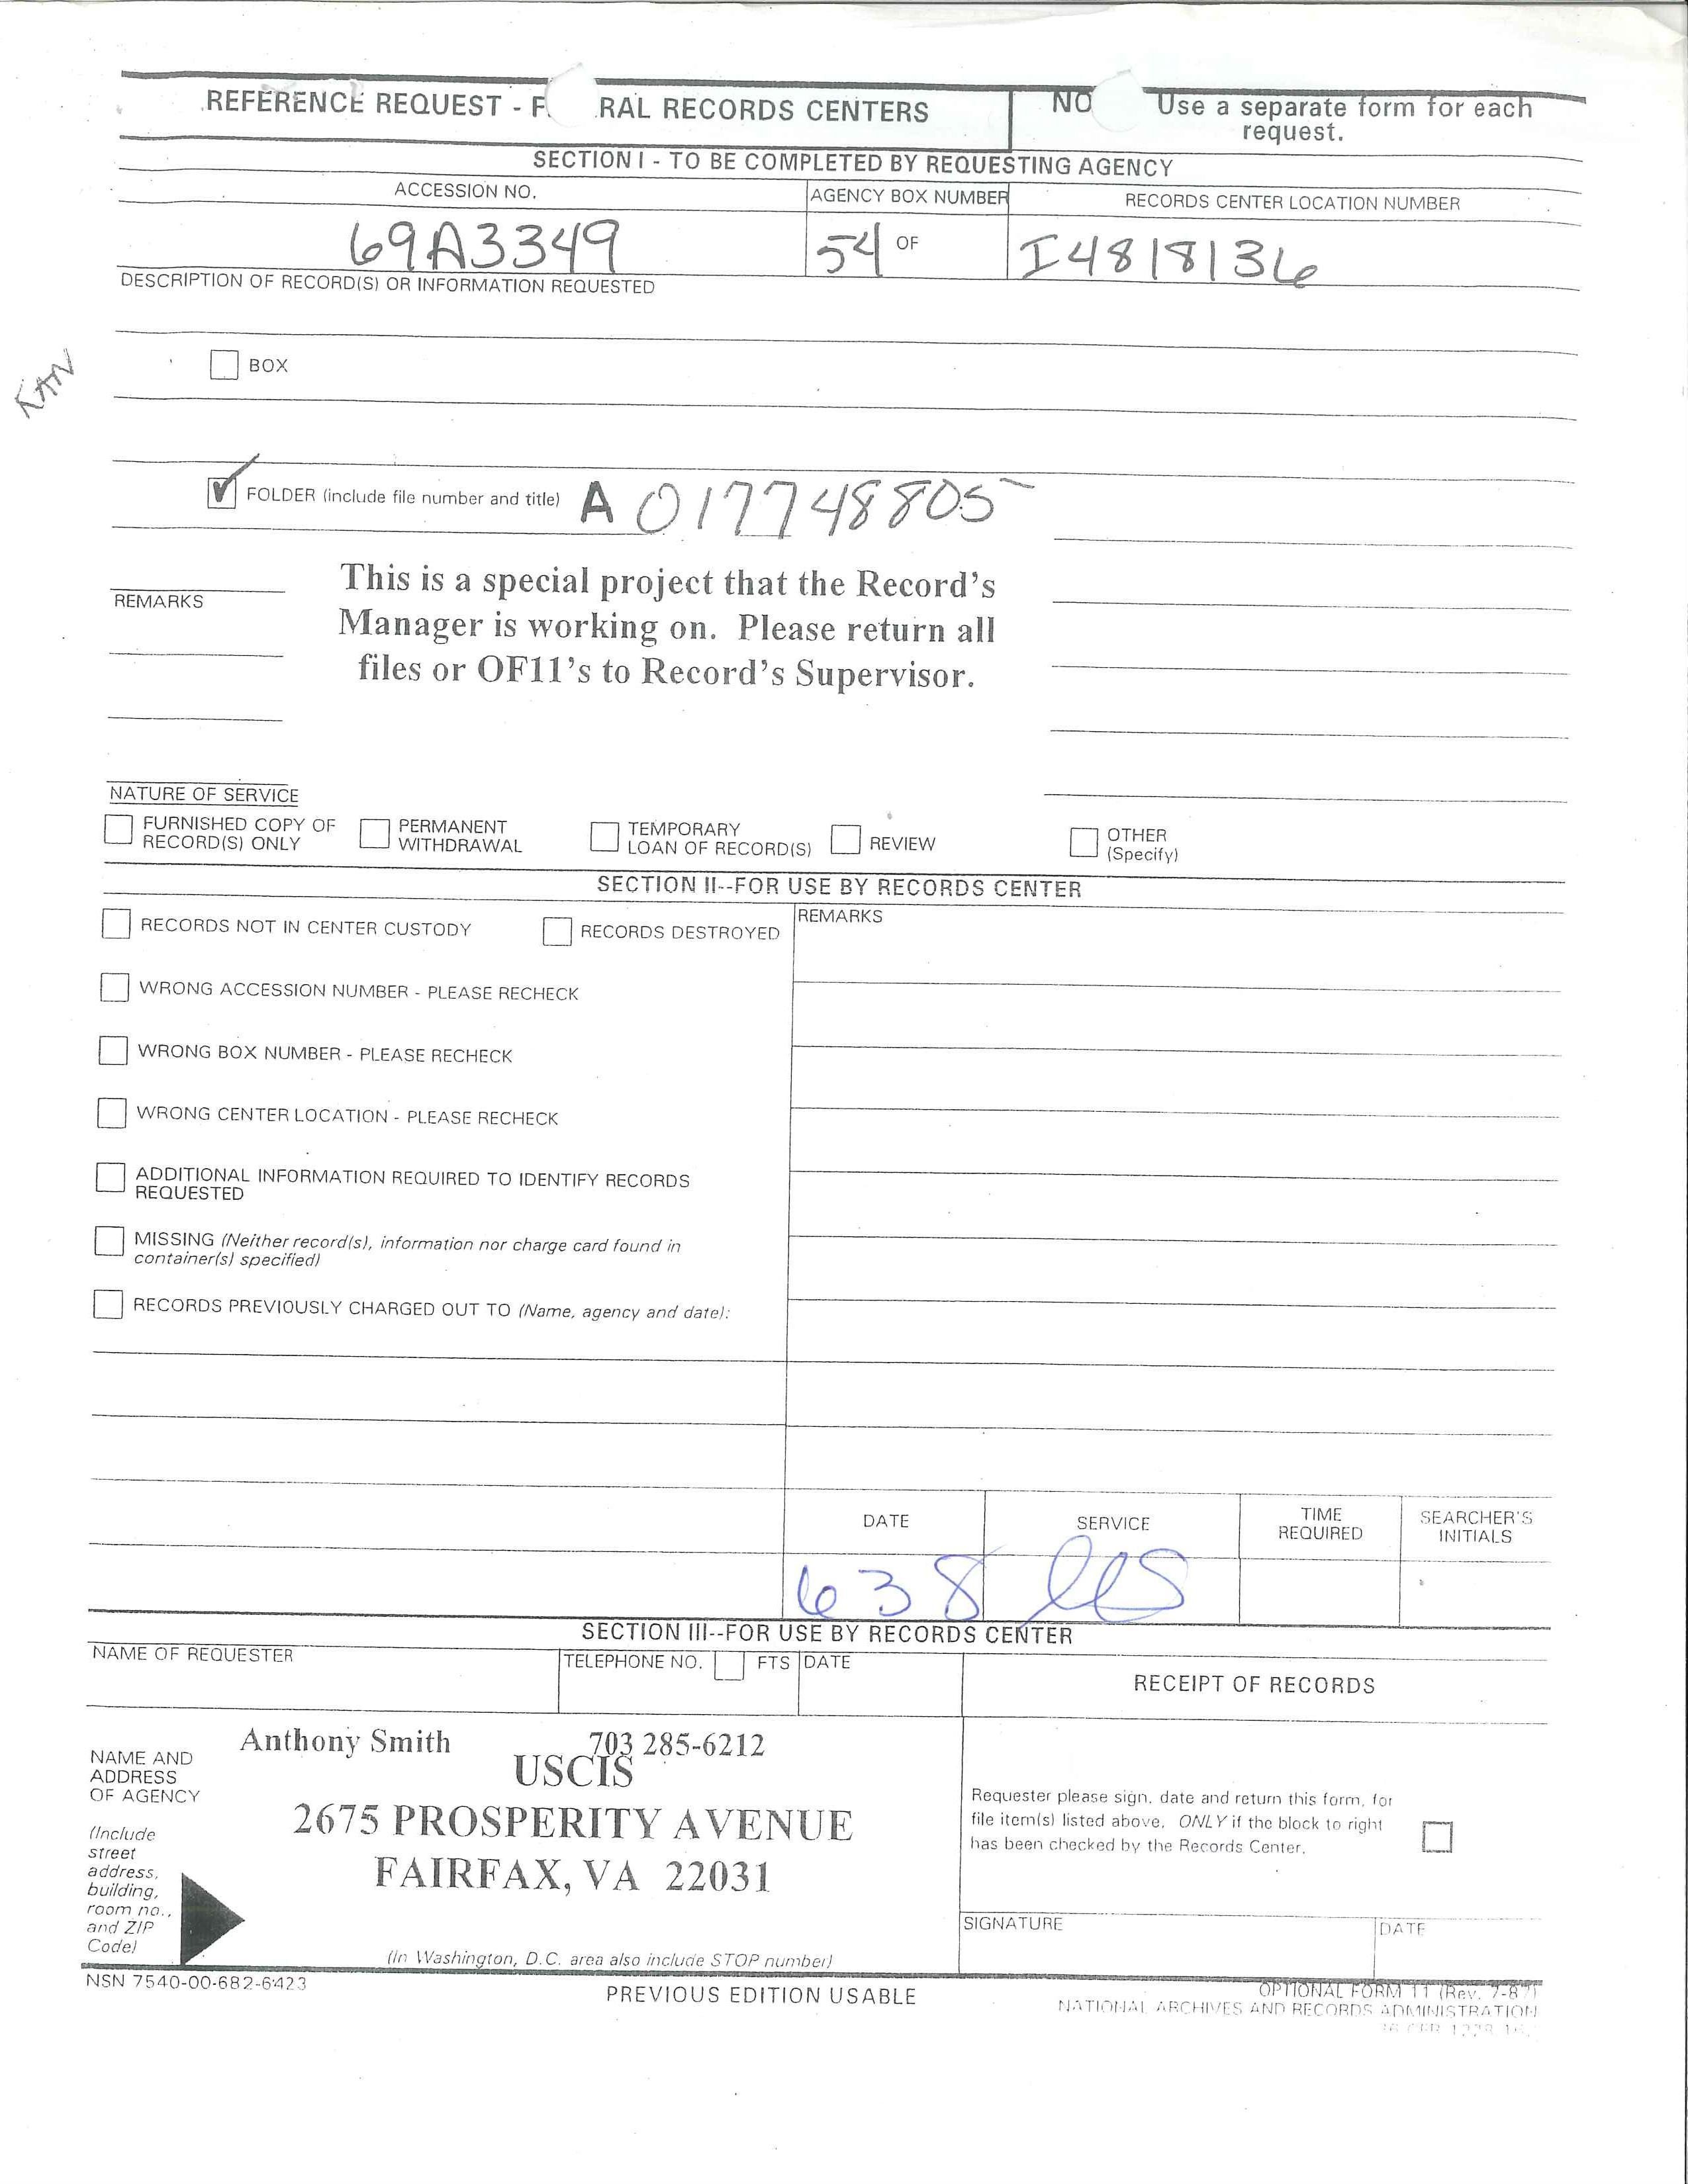 REFERENCE REQUEST - F RAL RECORDS CENTERS
NO Use a separate form for each
request.
SECTION I - TO BE COMPLETED BY REQUESTING AGENCY
ACCESSION NO. AGENCY BOX NUMBER RECORDS CENTER LOCATION NUMBER
69A3349 54 OF I4818136
DESCRIPTION OF RECORD(S) OR INFORMATION REQUESTED
BOX
FOLDER (include file number and title) A 017748805
REMARKS
This is a special project that the Record's
Manager is working on. Please return all
files or OF11's to Record's Supervisor.
NATURE OF SERVICE
FURNISHED COPY OF
RECORD(S) ONLY
PERMANENT
WITHDRAWAL
TEMPORARY
LOAN OF RECORD(S)
REVIEW
OTHER
(Specify)
SECTION II--FOR USE BY RECORDS CENTER
RECORDS NOT IN CENTER CUSTODY RECORDS DESTROYED
REMARKS
WRONG ACCESSION NUMBER - PLEASE RECHECK
WRONG BOX NUMBER - PLEASE RECHECK
WRONG CENTER LOCATION - PLEASE RECHECK
ADDITIONAL INFORMATION REQUIRED TO IDENTIFY RECORDS
REQUESTED
MISSING (Neither record(s), information nor charge card found in
container(s) specified)
RECORDS PREVIOUSLY CHARGED OUT TO (Name, agency and date):
DATE SERVICE
TIME
REQUIRED
SEARCHER'S
INITIALS
638
SECTION III--FOR USE BY RECORDS CENTER
NAME OF REQUESTER TELEPHONE NO. FTS DATE
RECEIPT OF RECORDS
Anthony Smith 703 285-6212
NAME AND
ADDRESS
OF AGENCY
(Include
street
address,
building,
room no.,
and ZIP
Code)
USCIS
2675 PROSPERITY AVENUE
FAIRFAX, VA 22031
(In Washington, D.C. area also include STOP number)
Requester please sign, date and return this form, for
file item(s) listed above, ONLY if the block to right
has been checked by the Records Center.
SIGNATURE DATE
NSN 7540-00-682-6423
PREVIOUS EDITION USABLE
OPTIONAL FORM 11 (Rev. 7-87)
NATIONAL ARCHIVES AND RECORDS ADMINISTRATION